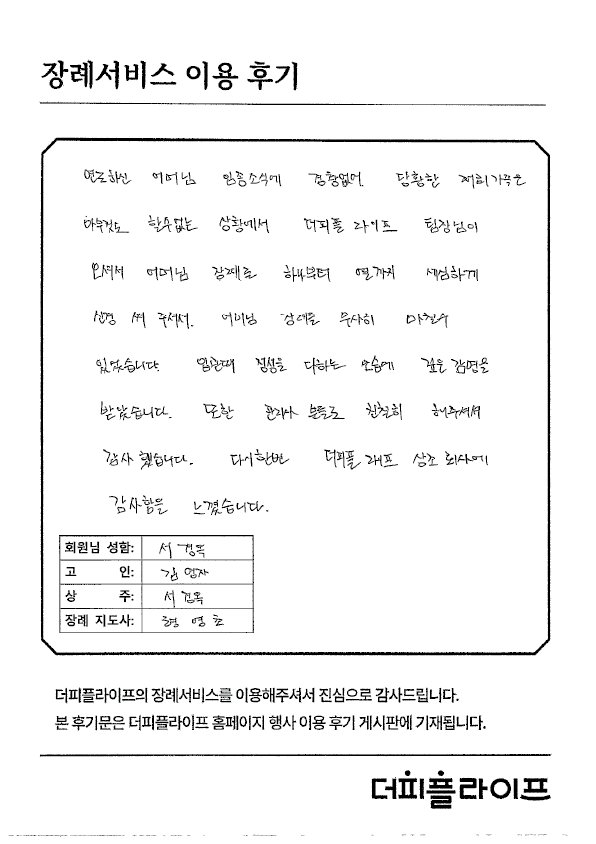 장례서비스 이용 후기
연로하신 어머님 임종소식에 경황없어 당황한 저희가족은
아무것도 할수없는 상황에서 더피플 라이프 팀장님이
오셔서 어머님 장례를 하나부터 열까지 세심하게
신경 써 주셔서. 어머님 장례를 무사히 마칠수
있었습니다. 입관때 정성을 다하는 모습에 깊은 감명을
받았습니다. 또한 분들도 친절히 해주셔서
감사 했습니다. 다시한번 더피플 라이프 상조 회사에
감사함을 느꼈습니다.
회원님 성함: 서
고 인: 김
상 주: 서
장례 지도사:
더피플라이프의 장례서비스를 이용해주셔서 진심으로 감사드립니다.
본 후기문은 더피플라이프 홈페이지 행사 이용 후기 게시판에 기재됩니다.
더피플라이프